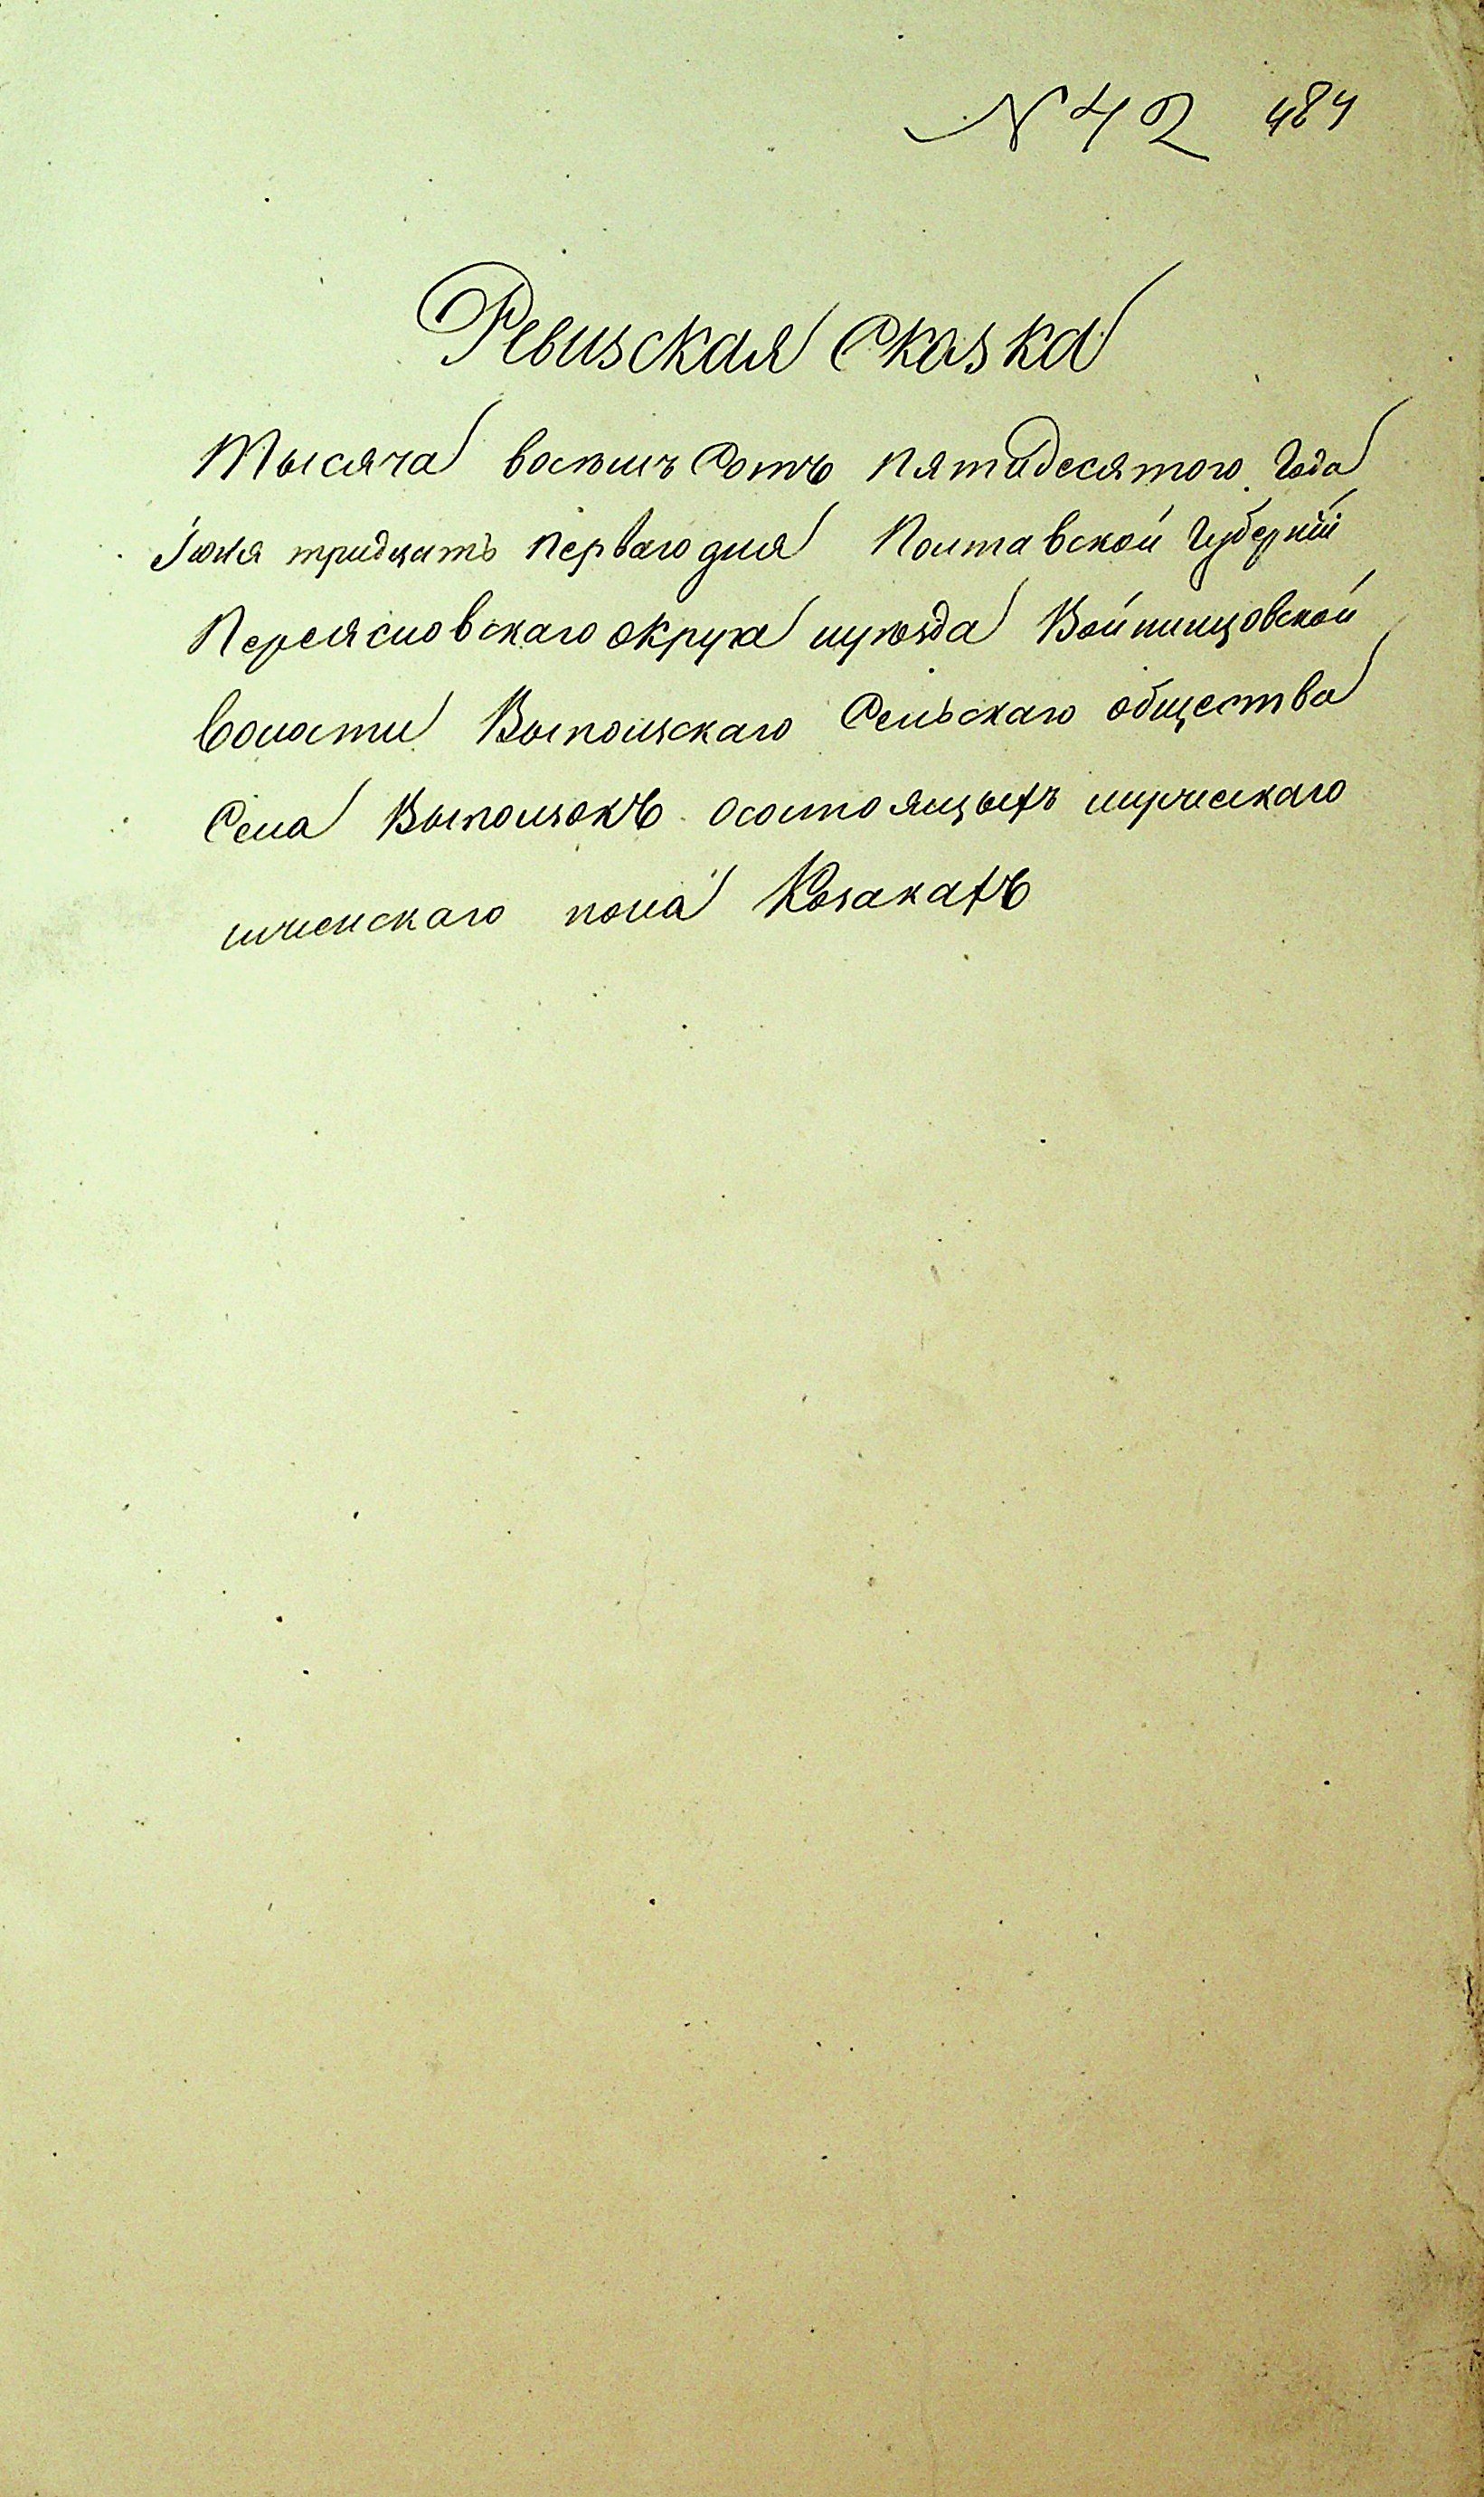 № 42 484
Ревизская Сказка
Тысяча восемь Сотъ пятидесятого года
Июня тридцать перваго дня Полтавской Губерніи
Переясловскаго округа иуѣзда Войтинцовской
Волости Выползскаго Сельскаго общества
Села Выползокъ Осостоящыхъ мужескаго
иженскаго пола Козакахъ